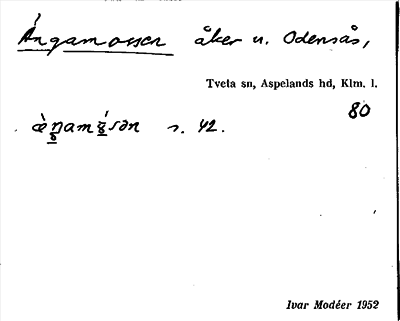 Ångamossen åker u. Odensås,
Tveta sn, Aspelands hd, Klm. l.
80
s. 42.
Ivar Modéer 1952